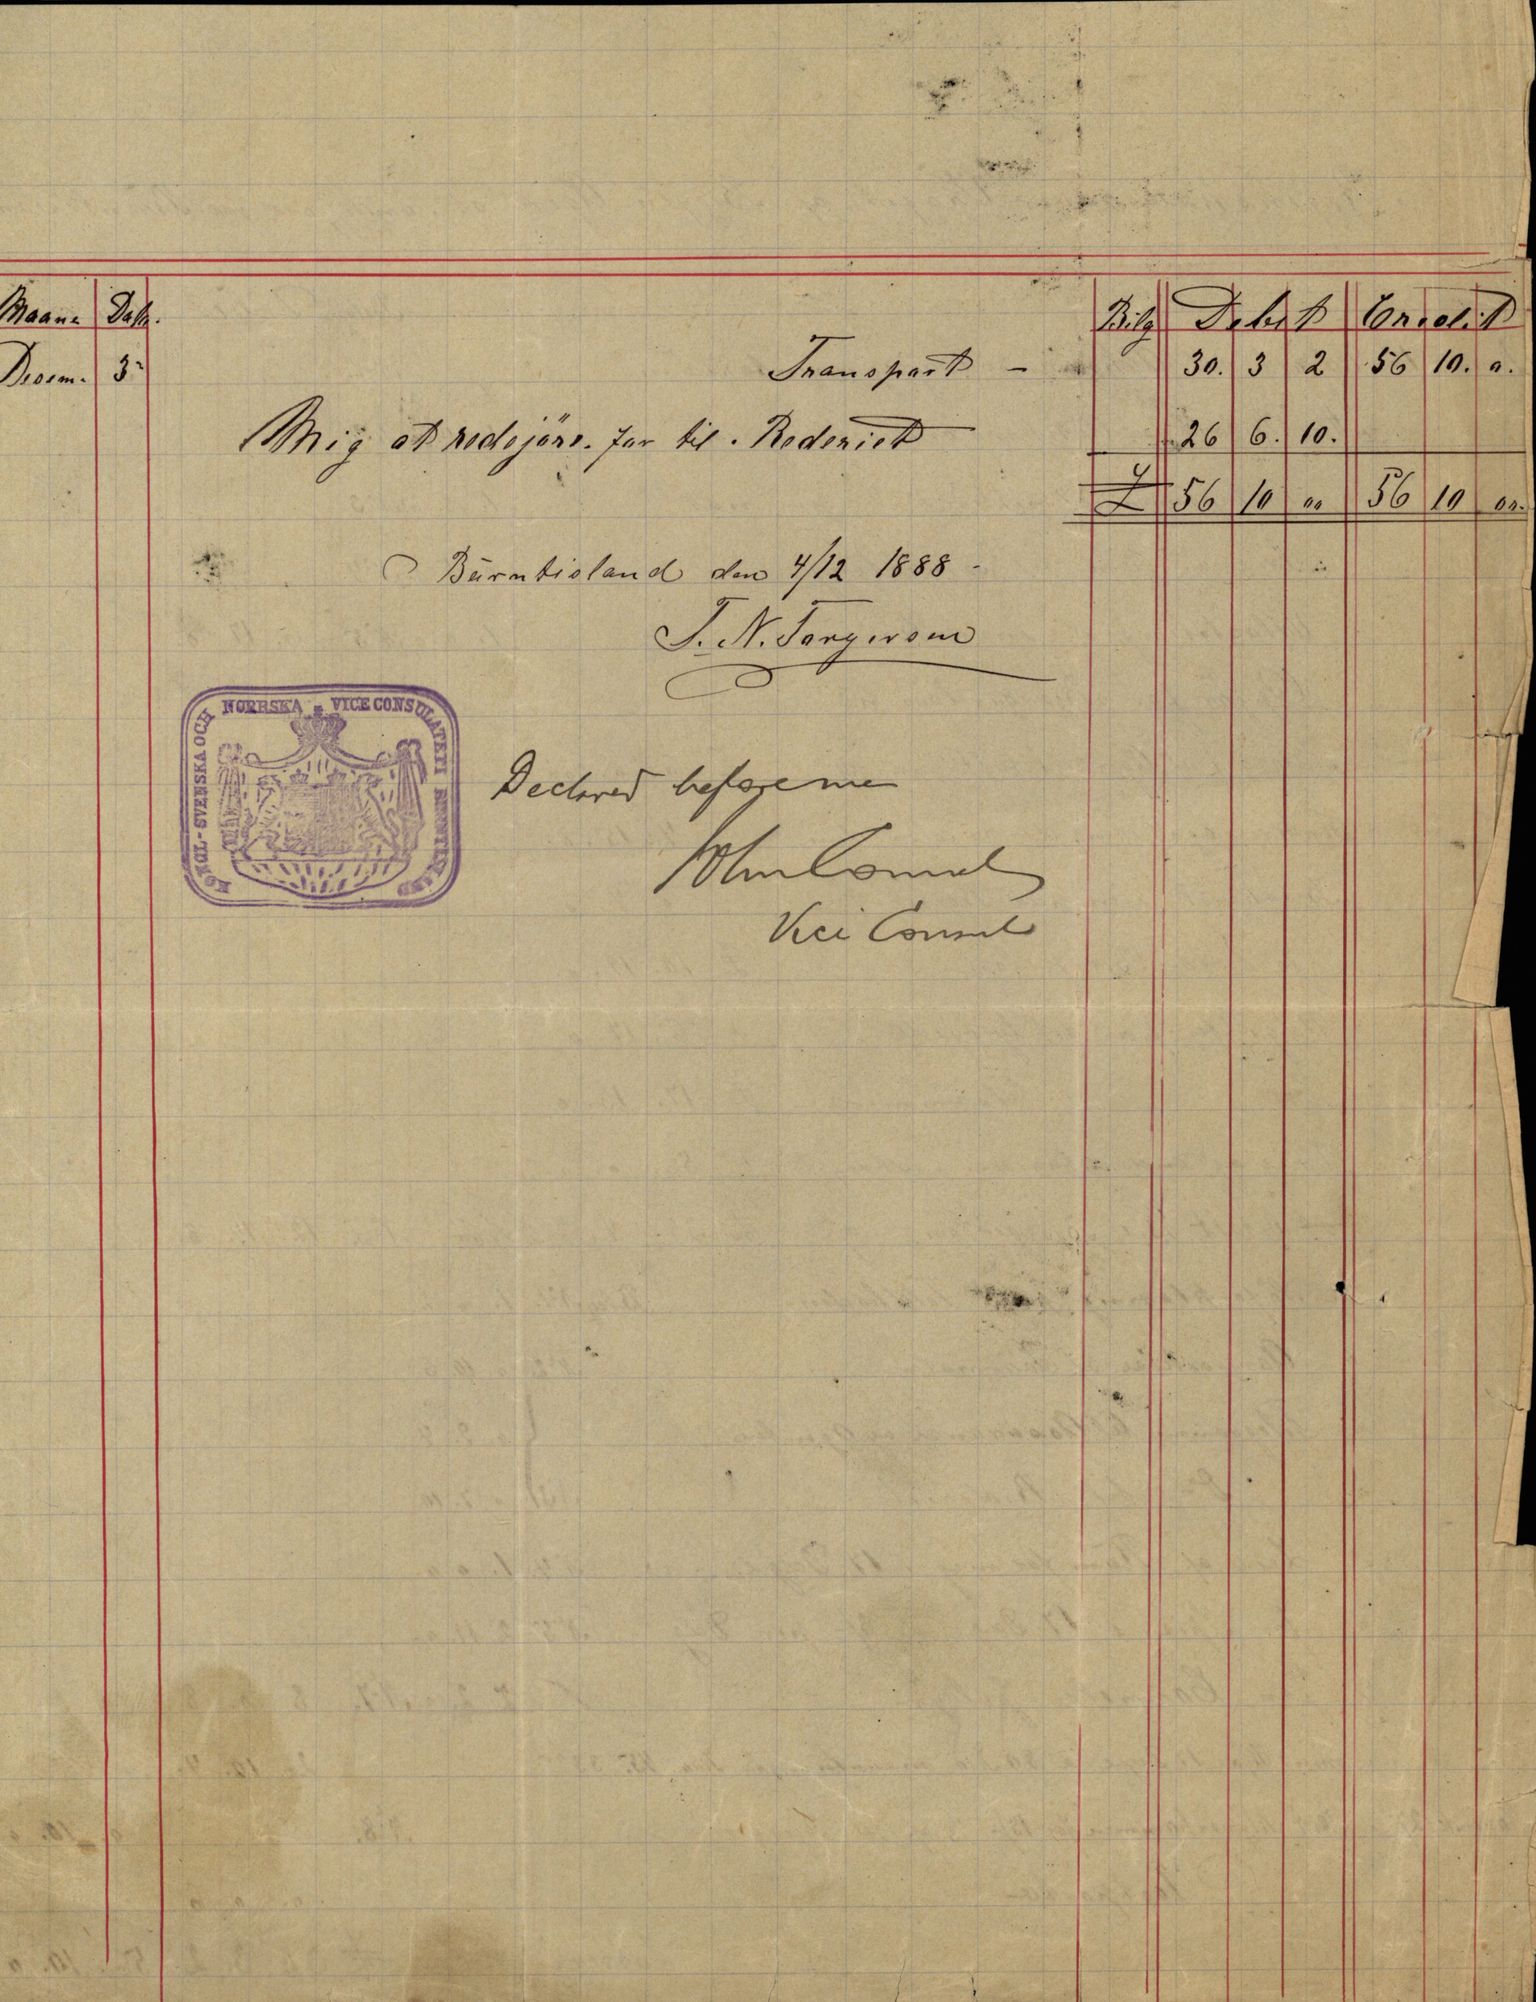 Maane Dato. Bilg Debet Credit
Desem. 3 Transport - 30. 3 2 56 10. o.
Mig at redejöre. for til. Rederiet 26 6. 10.
£ 56 10 oo 56 10 oo.
Bürntisland den 4/12 1888 -
T. N. Torgersen
KONGL. SVENSKA OCH NORRSKA VICE CONSULATETI BRNTISLAND
Declared before me
John Connel
Vice Consul